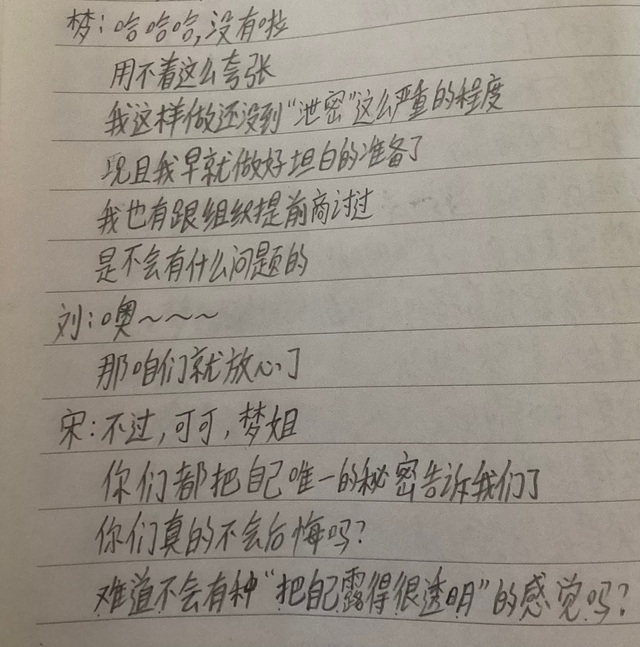 梦：哈哈哈，没有啦
用不着这么夸张
我这样做还没到“泄密”这么严重的程度
况且我早就做好坦白的准备了
我也有跟组织提前商讨过
是不会有什么问题的
刘：噢～～～
那咱们就放心了
宋：不过，可可，梦姐
你们都把自己唯一的秘密告诉我们了
你们真的不会后悔吗？
难道不会有种“把自己露得很透明”的感觉吗？